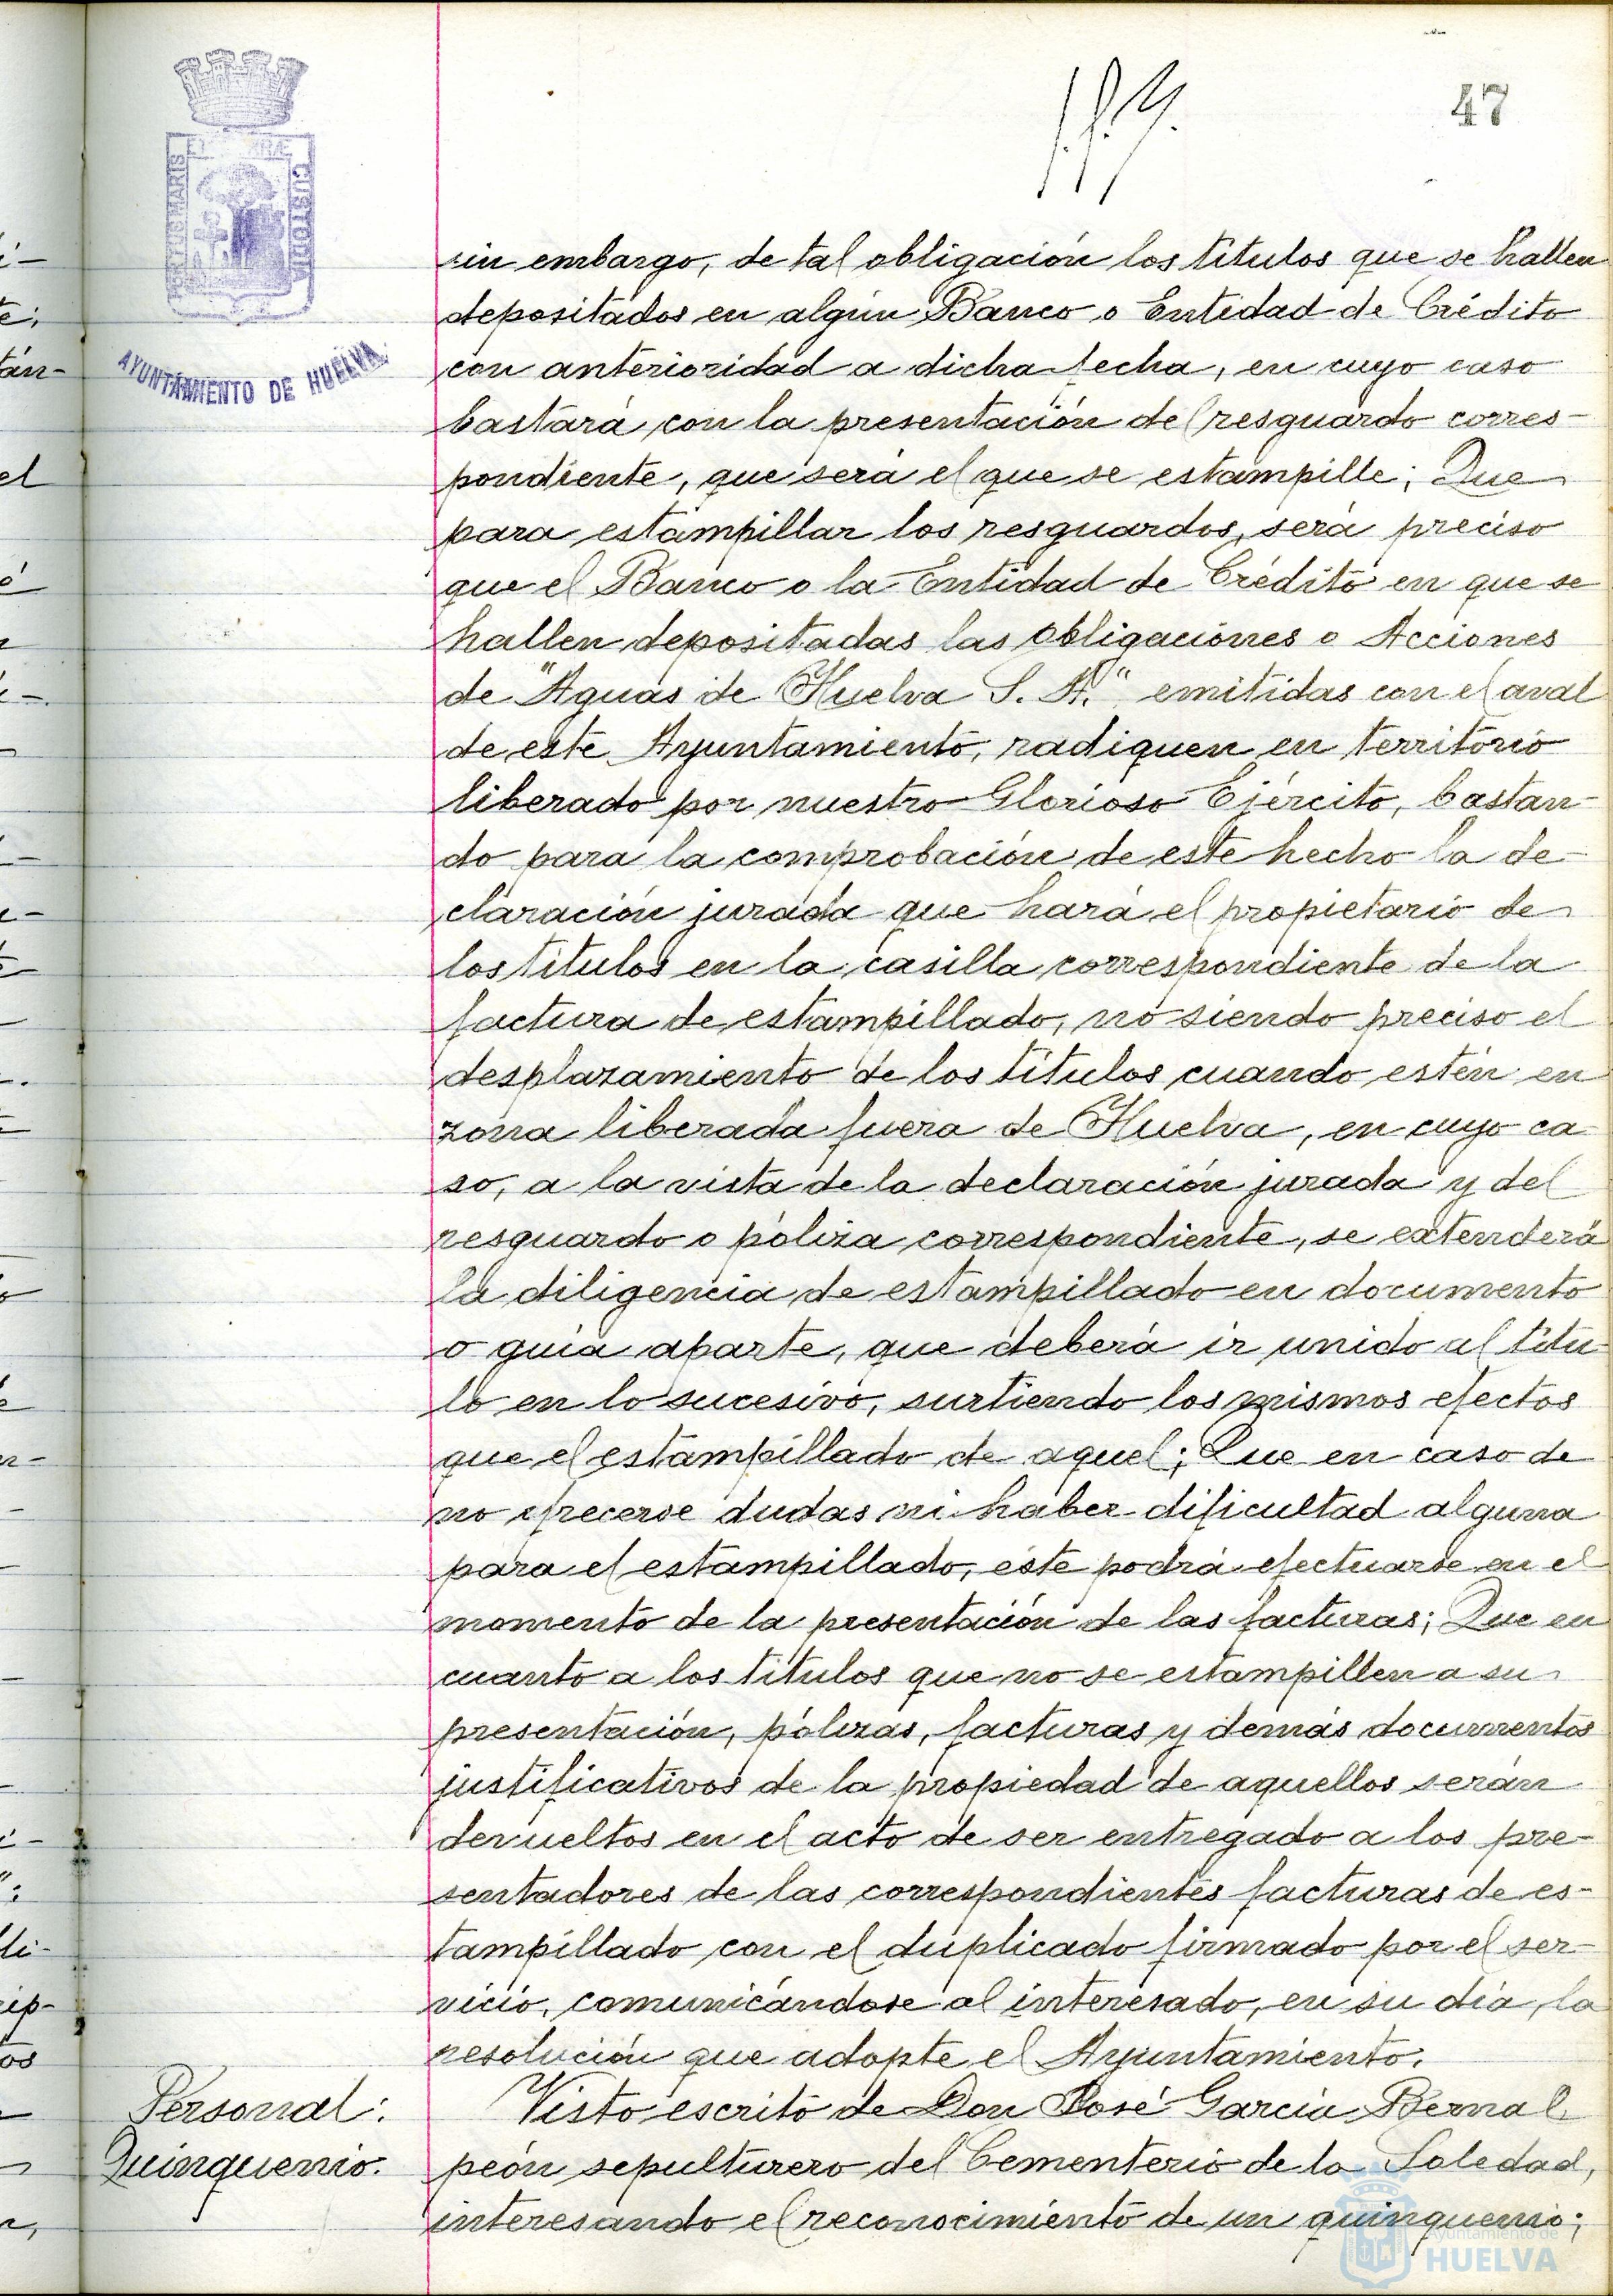 47
PORTUS MARIS ET TERRAE CUSTODIA
AYUNTAMIENTO DE HUELVA
sin embargo, de tal obligación los títulos que se hallen
depositados en algún Banco o Entidad de Crédito
con anterioridad a dicha fecha, en cuyo caso
bastará con la presentación del resguardo corres-
pondiente, que será el que se estampille; Que
para estampillar los resguardos, será preciso
que el Banco o la Entidad de Crédito en que se
hallen depositadas las Obligaciones o Acciones
de "Aguas de Huelva S. A." emitidas con el aval
de este Ayuntamiento, radiquen en territorio
liberado por nuestro Glorioso Ejército, bastan-
do para la comprobación de este hecho la de-
claración jurada que hará el propietario de
los títulos en la casilla correspondiente de la
factura de estampillado, no siendo preciso el
desplazamiento de los títulos cuando estén en
zona liberada fuera de Huelva, en cuyo ca
so, a la vista de la declaración jurada y del
resguardo o póliza correspondiente, se extenderá
la diligencia de estampillado en documento
o guía aparte, que deberá ir unido al títu-
lo en lo sucesivo, surtiendo los mismos efectos
que el estampillado de aquel; Que en caso de
no ofrecerse dudas ni haber dificultad alguna
para el estampillado, éste podrá efectuarse en el
momento de la presentación de las facturas; Que en
cuanto a los títulos que no se estampillen a su
presentación, pólizas, facturas y demás documentos
justificativos de la propiedad de aquellos serán
devueltos en el acto de ser entregado a los pre-
sentadores de las correspondientes facturas de es-
tampillado con el duplicado firmado por el ser-
vicio, comunicándose al interesado, en su día, la
resolución que adopte el Ayuntamiento.
Personal:
Quinquenio.
Visto escrito de Don José García Bernal
peón sepulturero del Cementerio de la Soledad,
interesando el reconocimiento de un quinquenio;
Ayuntamiento de
HUELVA